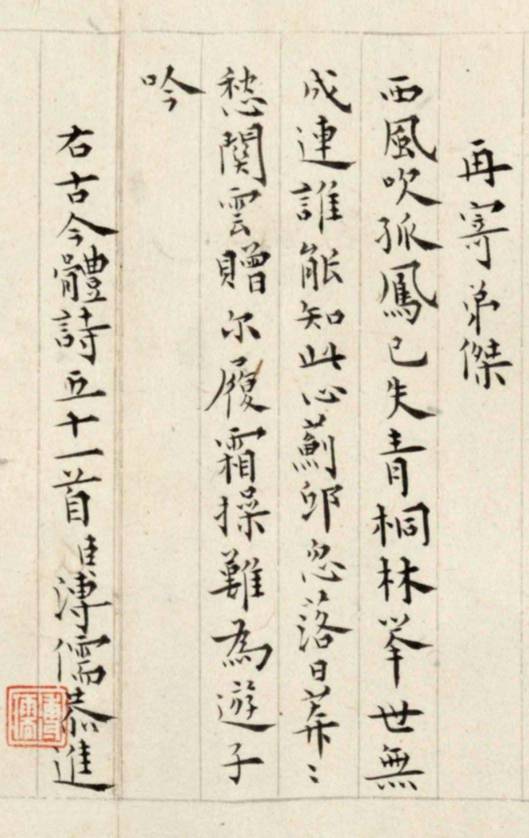 再寄弟傑
西風吹孤鳳已失青桐林舉世無
成連誰能知此心薊邱忽落日莽〻
愁關雲贈尔履霜操難為遊子
吟
右古今體詩五十一首臣溥儒恭進
溥儒